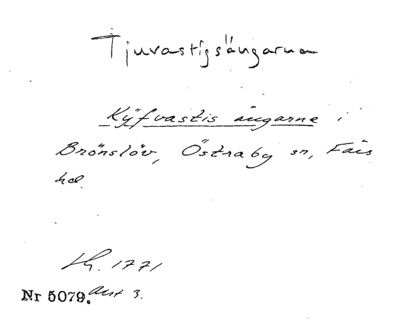 Tjuvastigsängarna
Kÿfvastis ängarne i
Brönslöv, Östraby sn, Färs
hd.
Lh. 1771
Nr 5079. Akt 3.